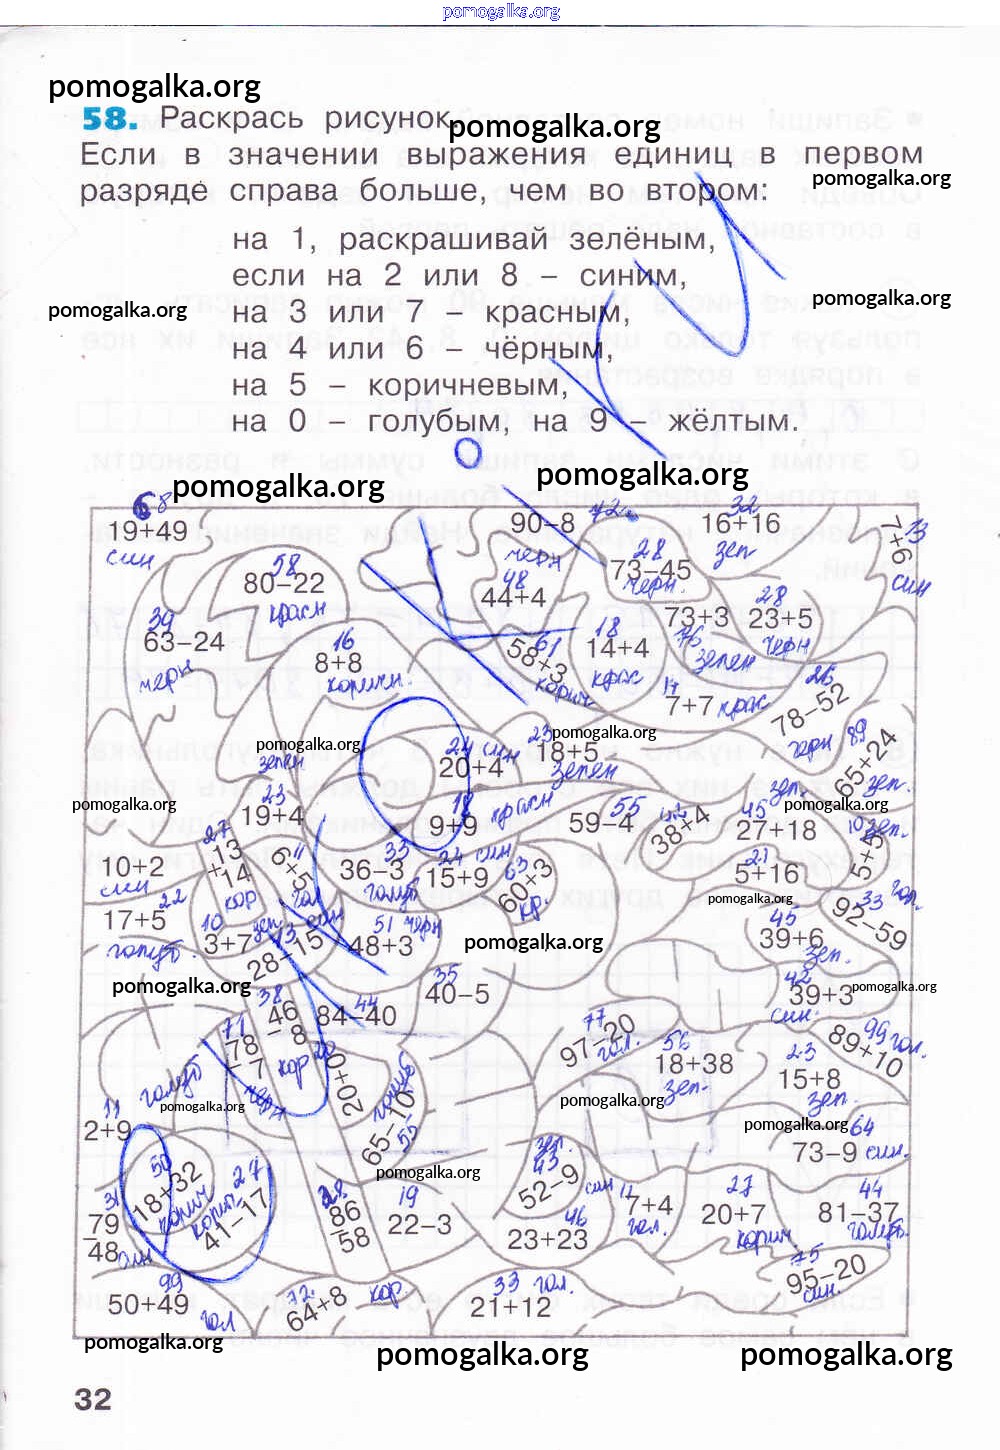 pomogalka.org
pomogalka.org
58. Раскрась рисунок.
pomogalka.org
Если в значении выражения единиц в первом
pomogalka.org
разряде справа больше, чем во втором:
на 1, раскрашивай зелёным,
если на 2 или 8 – синим,
pomogalka.org pomogalka.org
на 3 или 7 – красным,
на 4 или 6 – чёрным,
на 5 – коричневым,
на 0 – голубым, на 9 – жёлтым.
pomogalka.org pomogalka.org
68 72 32 13
19+49 90–8 16+16 7+6
син черн зел син
58 48 28
80–22 44+4 73–45 черн.
красн 28
39 73+3 23+5
63–24 76 зелен черн
черн 16 61 18
8+8 58+3 14+4
коричн. корич крас
14 26
7+7 крас 78–52
черн
pomogalka.org pomogalka.org
24 син 23 89
20+4 18+5 65+24
зелен зелен зел.
pomogalka.org pomogalka.org
23 18 красн 55 42 45 зел.
19+4 9+9 59–4 38+4 27+18
27 11 33 24 син 63 21 10 зел.
10+2 13+14 6+5 36–3 15+9 60+3 5+16 5+5
син кор гол голуб кр.
pomogalka.org
22 33 гол.
17+5 92–59
голуб.
10 зел. 13 син 51 черн 45
3+7 28–15 48+3 39+6
зел.
pomogalka.org
pomogalka.org pomogalka.org
38 44 35 42
46–8 84–40 40–5 39+3
кор син.
71 77 56 99 гол.
78–7 20+20 97–20 18+38 89+10
черн гол. зел.
голуб голуб 23
65–10 15+8
55 зел.
pomogalka.org pomogalka.org
11 pomogalka.org 64
2+9 73–9 син.
pomogalka.org
50 27 43 зел.
18+32 41–17 52–9
корич корич.
31 28 19 46 син 11 27 44
79–48 86–58 22–3 23+23 7+4 20+7 81–37
син гол. корич голуб.
99 72 кор 33 гол. 75
50+49 64+8 21+12 95–20
гол син.
pomogalka.org pomogalka.org pomogalka.org
32